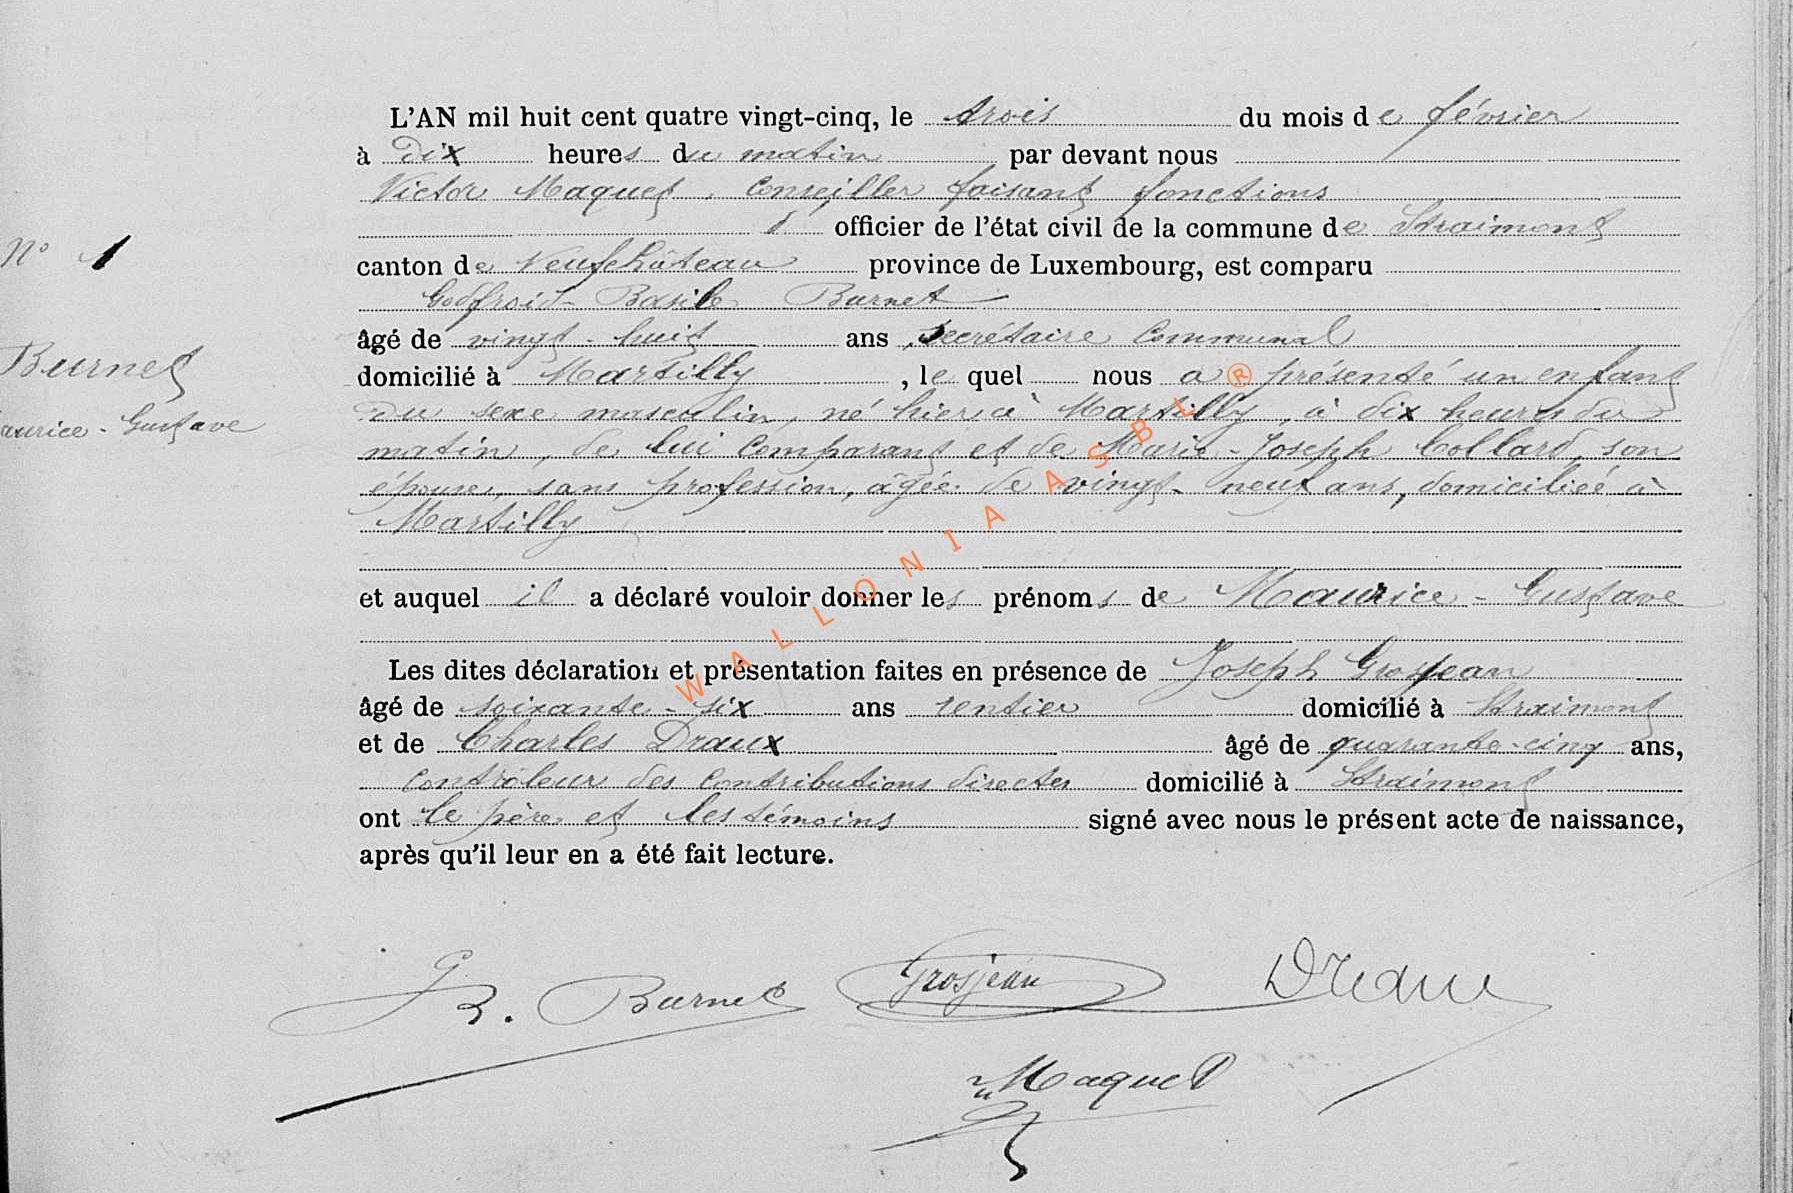 L'AN mil huit cent quatre vingt-cinq, le trois du mois de février
à dix heures du matin par devant nous
Victor Maquet, Conseiller faisant fonctions
d' officier de l'état civil de la commune de Straimont
N° 1
canton de Neufchâteau province de Luxembourg, est comparu
Godfroid-Basile Burnet
âgé de vingt-huit ans, secrétaire Communal
Burnet
domicilié à Martilly, le quel nous a présenté un enfant
du sexe masculin, né hier à Martilly, à dix heures du
aurice-Gustave
matin, de lui Comparant et de Marie-Joseph Collard, son
épouse, sans profession, âgée de vingt-neuf ans, domiciliée à
Martilly
et auquel il a déclaré vouloir donner les prénoms de Maurice-Gustave
Les dites déclaration et présentation faites en présence de Joseph Grosjean
âgé de soixante-six ans rentier domicilié à Straimont
et de Charles Draux âgé de quarante-cinq ans,
contrôleur des Contributions directes domicilié à Straimont
ont le père et les témoins signé avec nous le présent acte de naissance,
après qu'il leur en a été fait lecture.
G B. Burnet Grosjean Draux
Maquet
WALLONIA ASBL ®